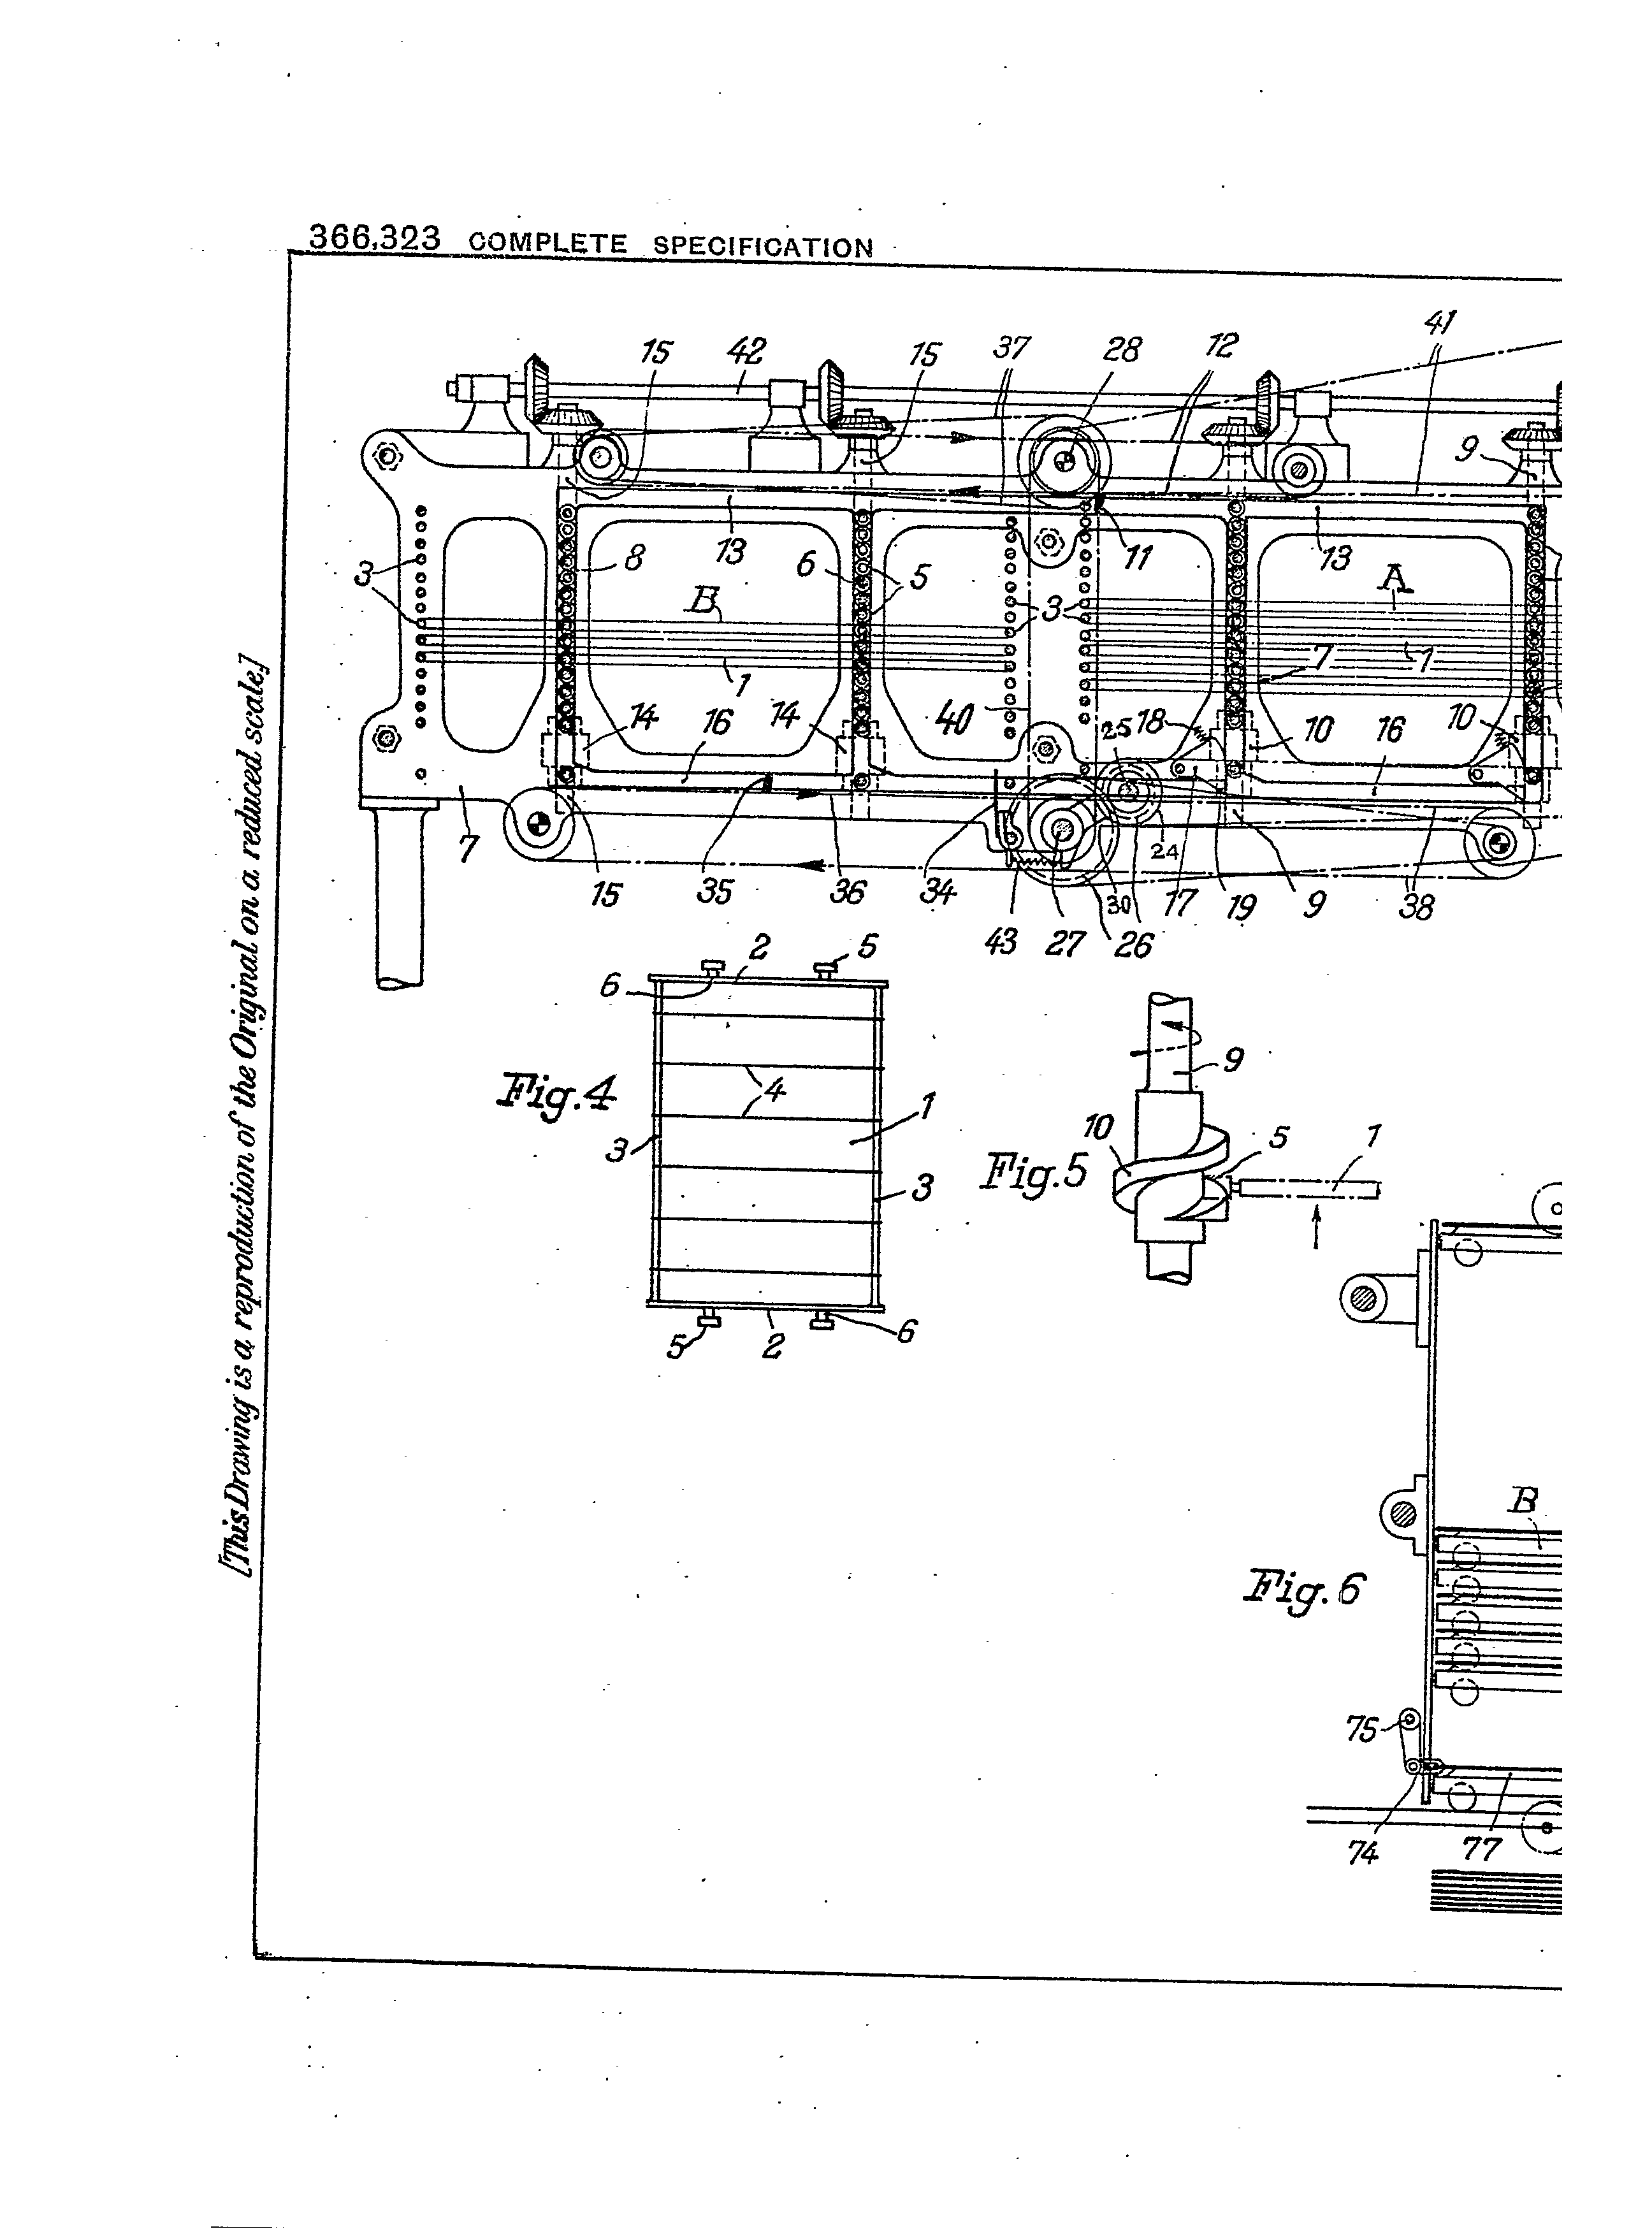 366,323 COMPLETE SPECIFICATION
[This Drawing is a reproduction of the Original on a reduced scale.]
41
15 42 15 37 28 12
9
3 13 8 6 5 11 13
B 3 A
1 7 1
14 16 14 40 25 18 10 16 10
7 15 35 36 34 24 17 19 9 38
30
43 27 26
2 5
6
Fig.4
4
1
3
3
5 2 6
9
10 5 1
Fig.5
B
Fig.6
75
74 77